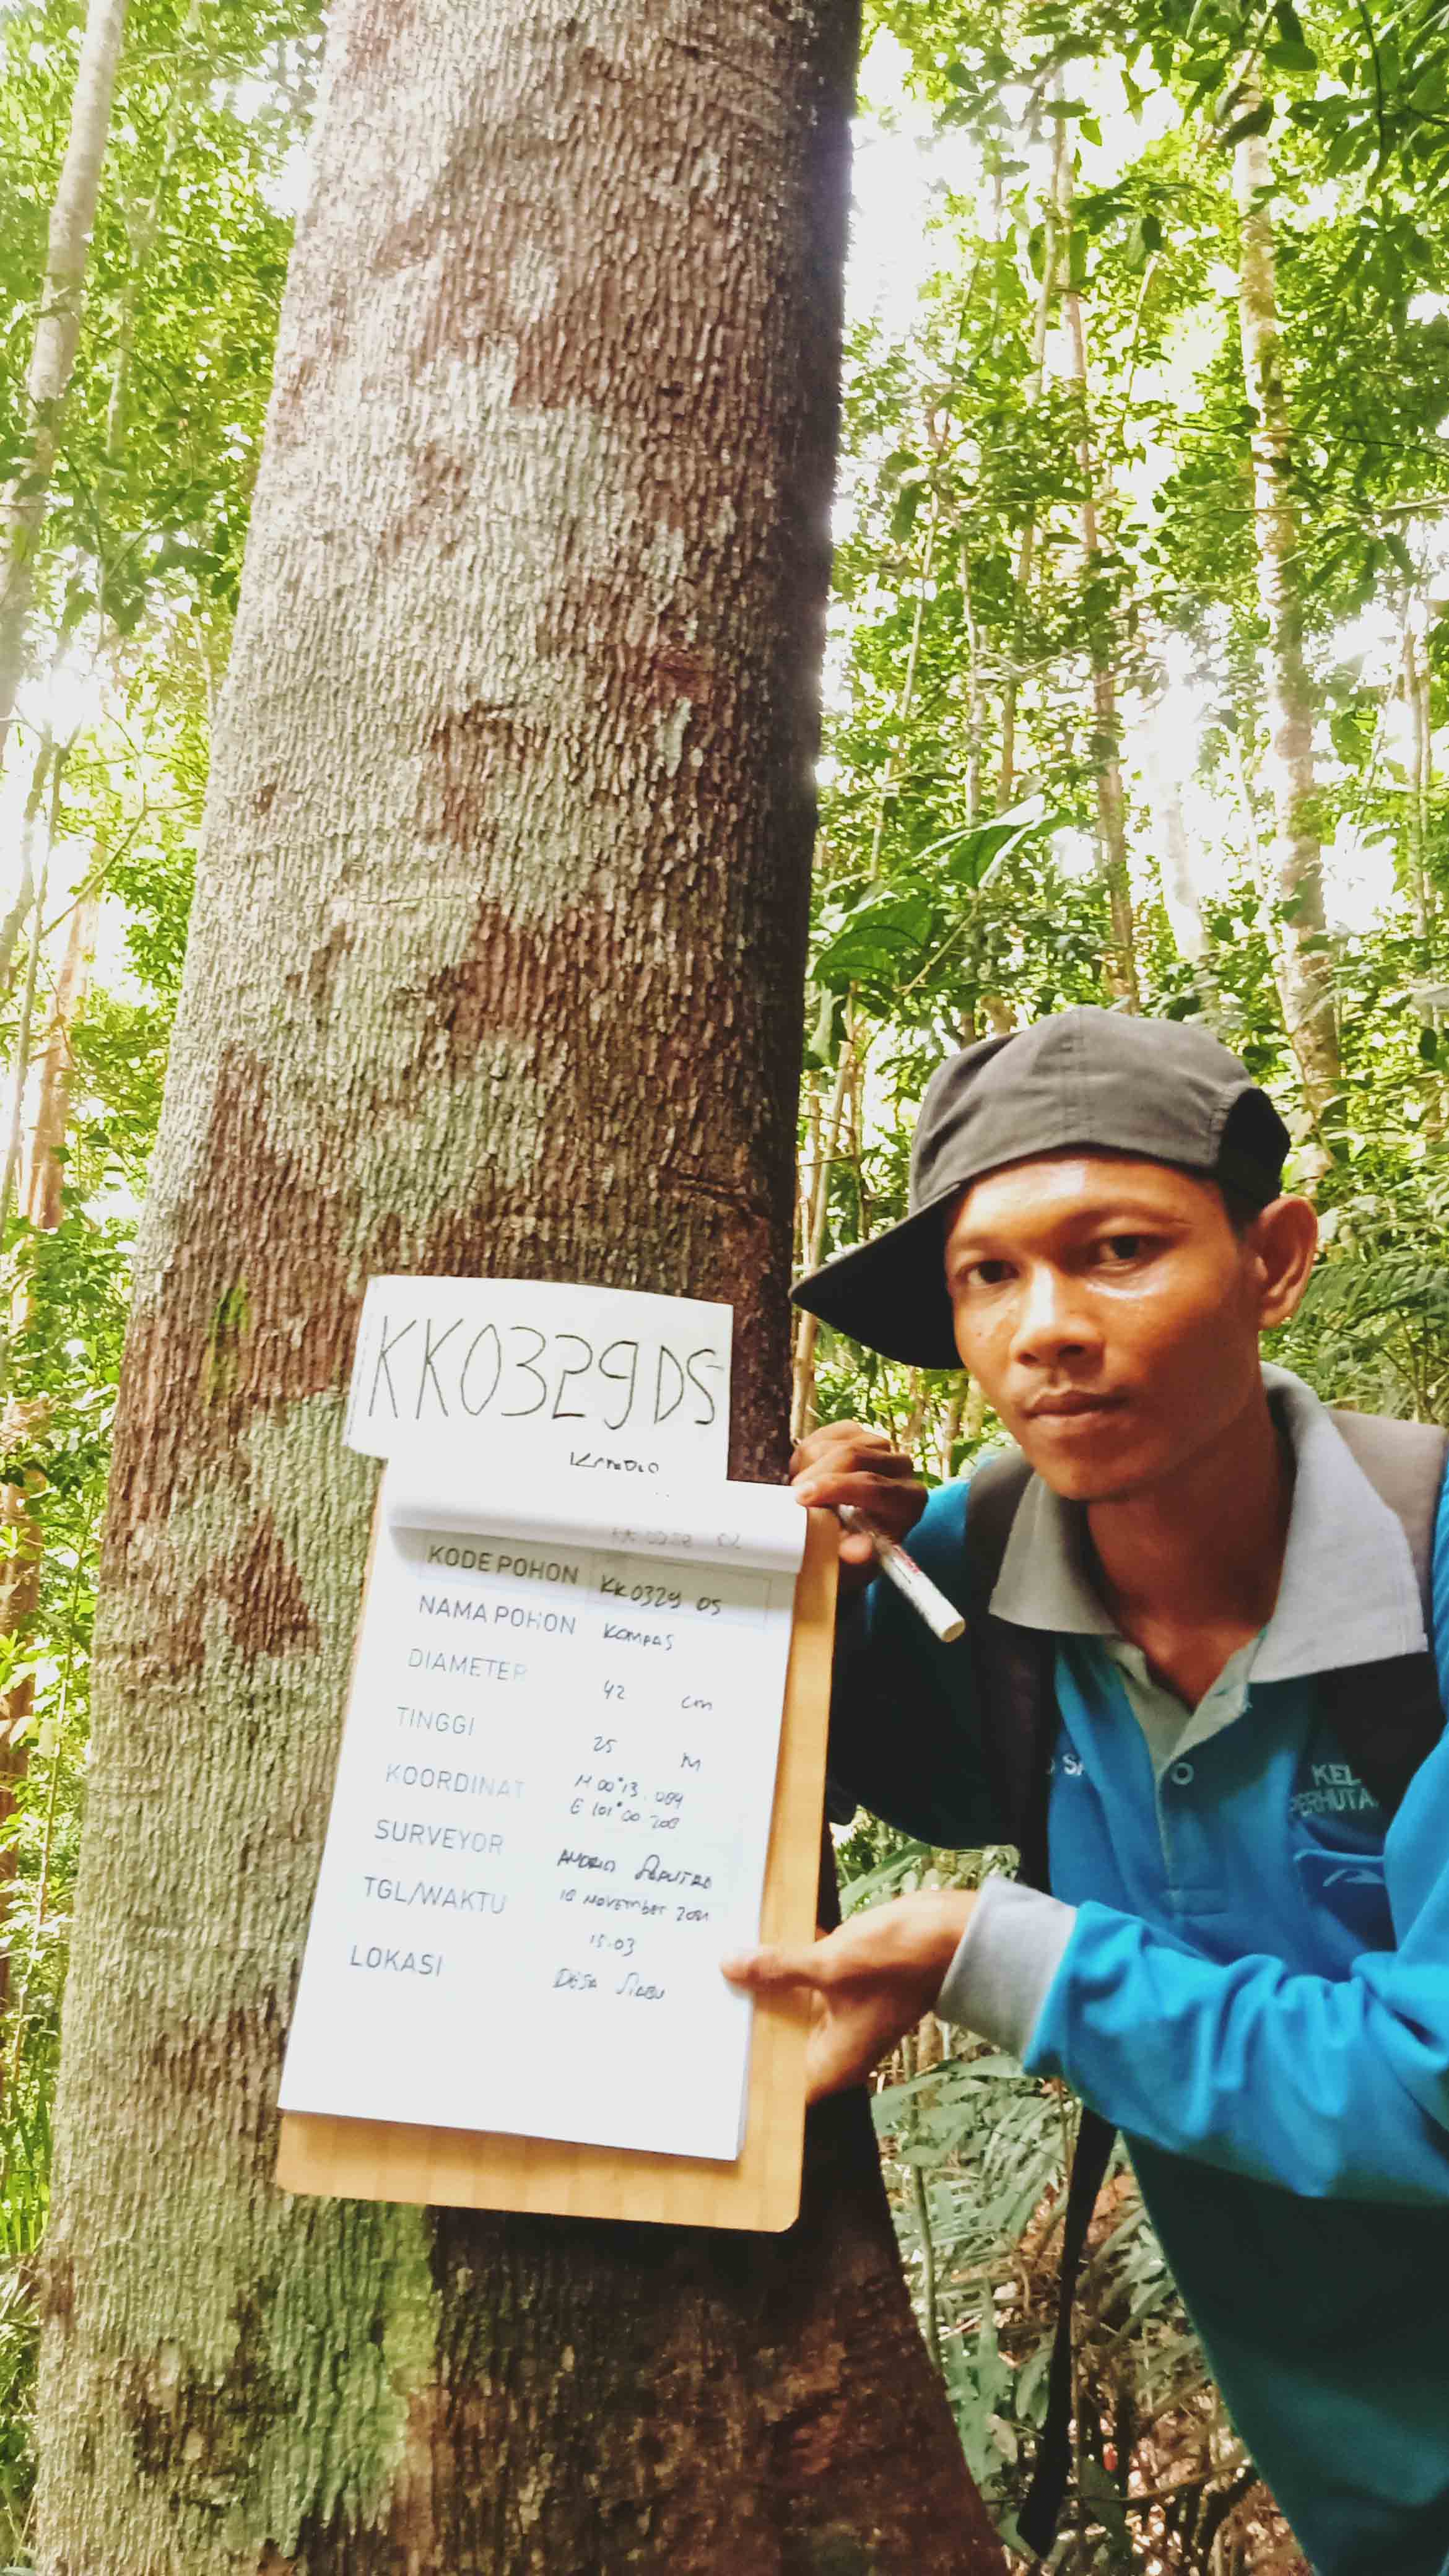 KK0329DS
KODE POHON KK0329 DS
NAMA POHON KOMPAS
DIAMETER 42 cm
TINGGI 25 M
KOORDINAT N 00°13.
E 101°00
SURVEYOR
TGL/WAKTU NOVEMBER 2021
15.03
LOKASI DESA SIABU
KEL
PERHUTA